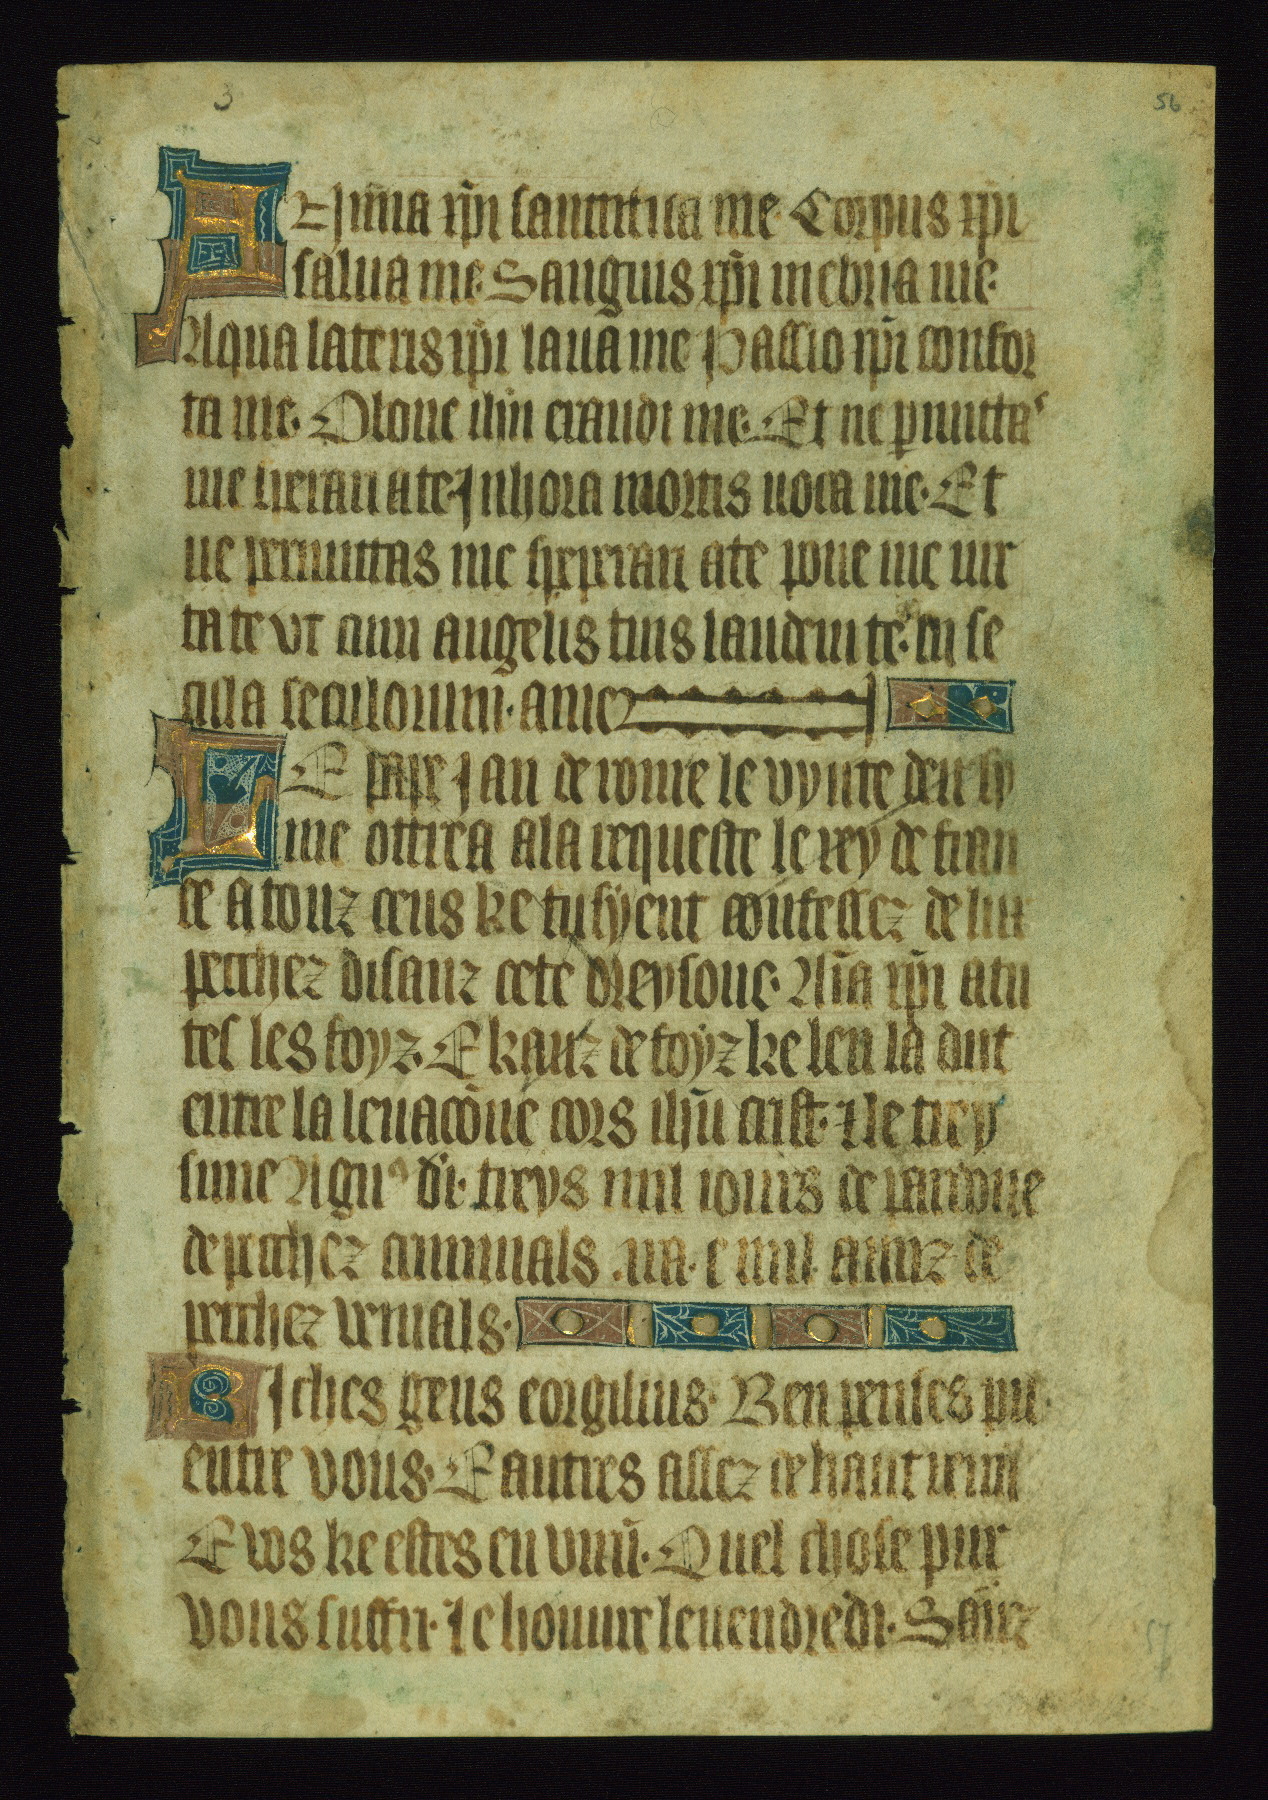 3
56
Anima xp̄i sanctifica me. Corpus xp̄i
salua me. Sanguis xp̄i inebria me.
Aqua lateris xp̄i laua me Passio xp̄i confor
ta me. O bone ih̄u exaudi me. Et ne p̱mittas
me separari a te. In hora mortis uoca me. Et
ne permittas me separari a te pone me iux
ta te vt cum angelis tuis laudem te. in se
cula seculorum. amen
Le pape Jan de rome le vynte deusy
me ottrea a la requeste le rey de fran
ce a touz ceus ke fusyent confessez de lur
pecchez disanz cete oreysone. Aīa xp̄i a tu
tes les foyz. E kauz de foyz ke len la dut
entre la leuacōne cors ih̄u crist. ⁊ le trey
sime Agnꝰ di. treys mil iours de pardone
de pecchez criminals. mil. aunz de
pecchez venials.
Riches gens eorgilius. Ben penses pu
entre vous. E autres assez de haut renū
E vos ke estes en virū. Quel chose pur
vous suffri. Ie homme le uendredi. Sanz
57